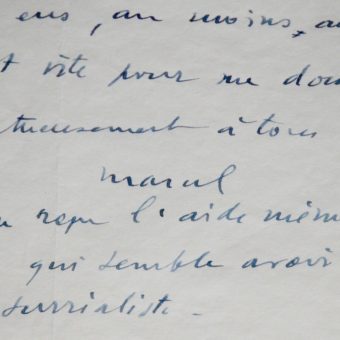 ens, au moins, au
t vite pour me don
ctueusement à tous
Marcel
reçu l'aide mém
qui semble avoir
surrialiste.